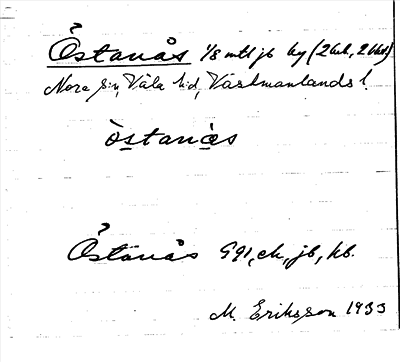 Östanås 1/8 mtl jb by (2 hel, 2 lht)
Nora sn, Våla hd, Västmanlands l.
òstanås
Östanås GGI, ek, jb, kb.
M. Eriksson 1933